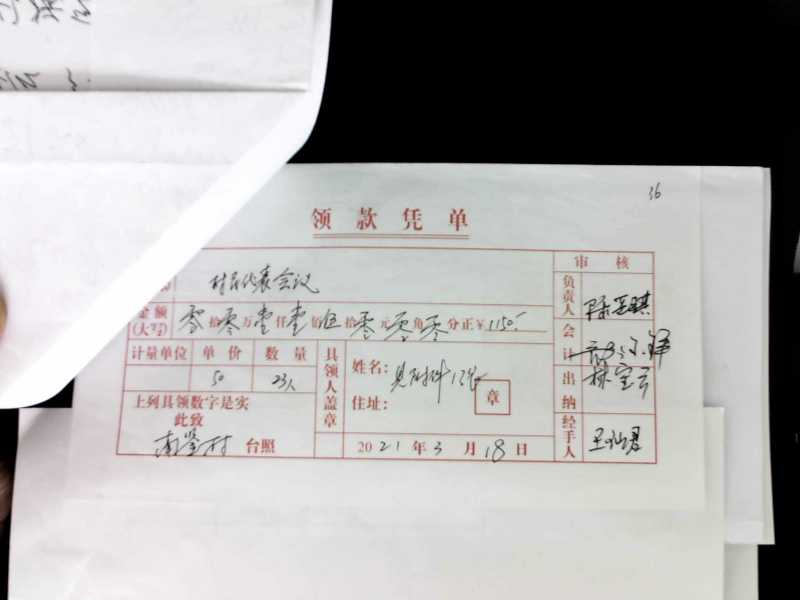 36
领款凭单
村民代表会议
审核
金额(大写) 零拾零万壹仟壹佰伍拾零元零角零分正¥1150-
负责人
会计
计量单位 单价 数量
50 23人
具领人盖章
姓名: 见附件
住址:
章
出纳 林宝云
上列具领数字是实
此致
南鉴村 台照
2021年3月18日
经手人 王仙君